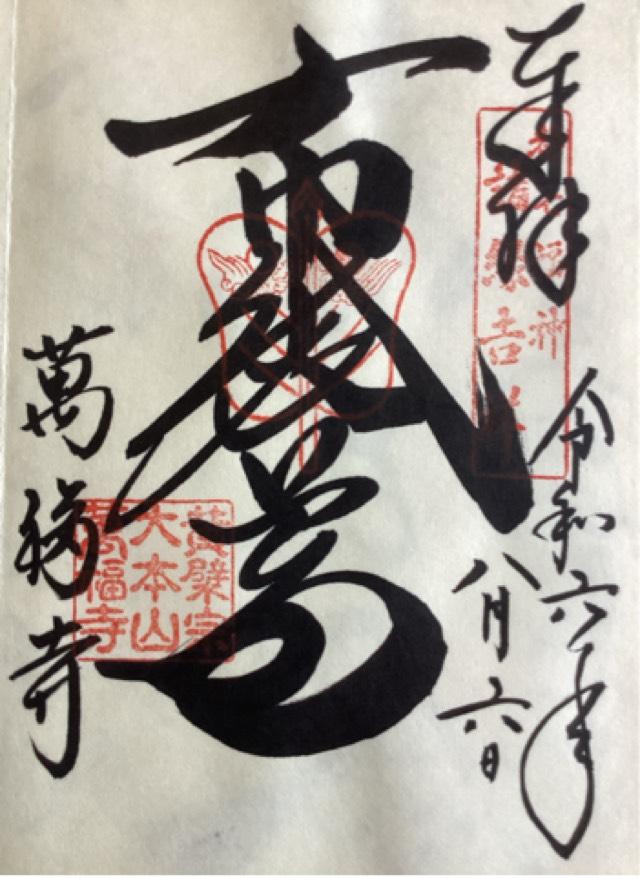 奉拝
令和六年
八月六日
布袋尊
黄檗宗
大本山
萬福寺
萬福寺